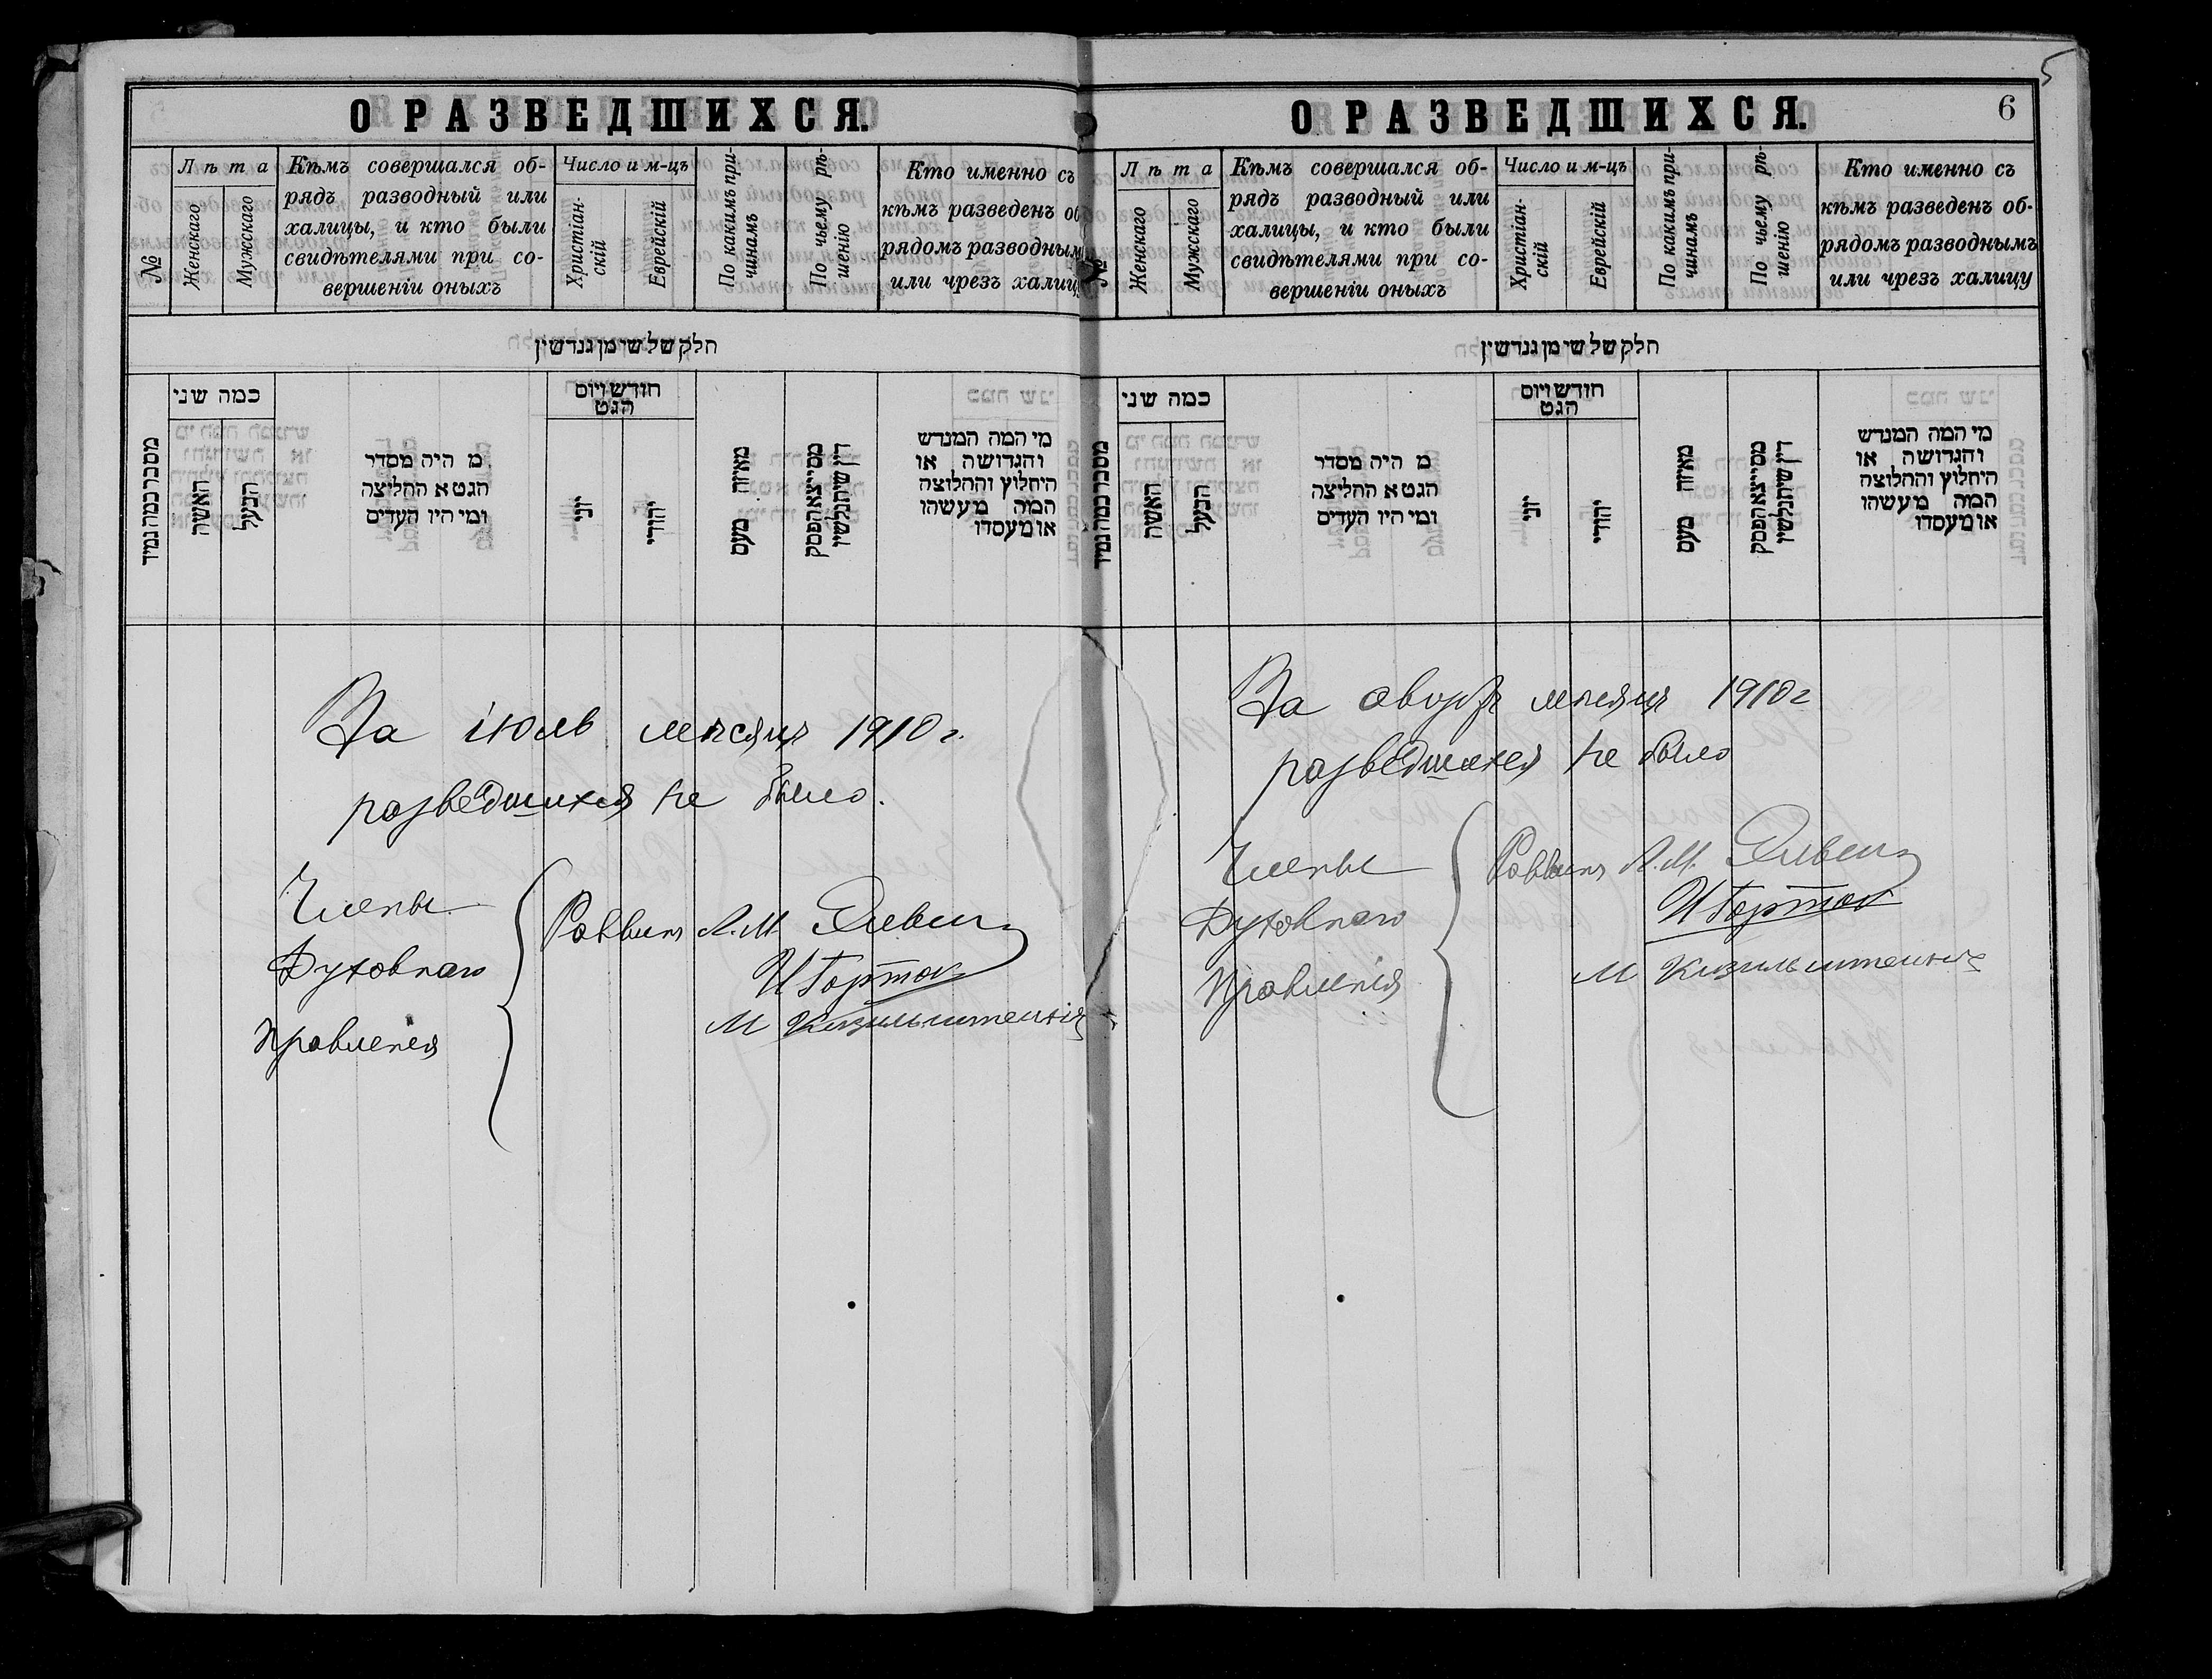 О РАЗВЕДШИХСЯ.
№
Лѣта
Женскаго
Мужскаго
Кѣмъ совершался об-
рядъ разводный или
халицы, и кто были
свидѣтелями при со-
вершеніи оныхъ
Число и м-цъ
Христіан-
скій
Еврейскій
По какимъ при-
чинамъ
По чьему рѣ-
шенію
Кто именно съ
кѣмъ разведенъ об
рядомъ разводным
или чрезъ халиц
חלק שלשי מן גנדשין
כמה שני
האשה
הבעל
מ היה מסדר
הגט א החליצה
ומי היו העדים
חודש ויום
הגט
יוני
יהודי
מאיזה טעם
מי המה המגרש
והגרושה או
היחלוץ והחלוצה
המה מעשהו
או מעסדו
За іюль мѣсяцъ 1910 г.
разведшихся не было.
Члены
Духовнаго
Правленія
Раввинъ Л. М. Элевин
И Гортов
М Кизильштейнъ
5
О РАЗВЕДШИХСЯ.
6
№
Лѣта
Женскаго
Мужскаго
Кѣмъ совершался об-
рядъ разводный или
халицы, и кто были
свидѣтелями при со-
вершеніи оныхъ
Число и м-цъ
Христіан-
скій
Еврейскій
По какимъ при-
чинамъ
По чьему рѣ-
шенію
Кто именно съ
кѣмъ разведенъ об-
рядомъ разводнымъ
или чрезъ халицу
חלק שלשי מן גנדשין
כמה שני
האשה
הבעל
מ היה מסדר
הגט א החליצה
ומי היו העדים
חודש ויום
הגט
יוני
יהודי
מאיזה טעם
מי המה המגרש
והגרושה או
היחלוץ והחלוצה
המה מעשהו
או מעסדו
За августъ мѣсяцъ 1910 г
разведшихся не было
Члены
Духовнаго
Правленія
Раввинъ Л. М. Элевин
И Гортов
М Кизильштейнъ